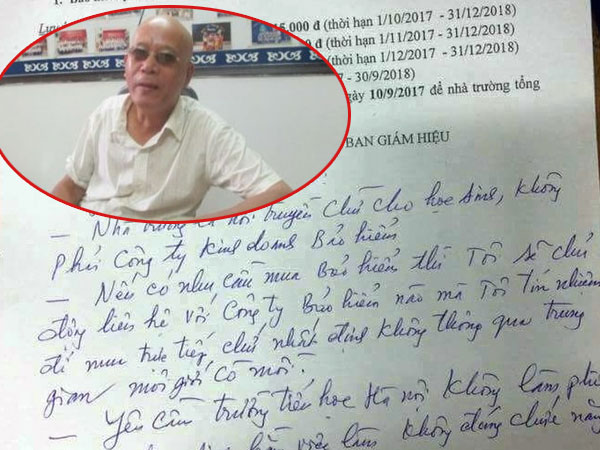 1. Bảo
15.000 đ (thời hạn 1/10/2017 - 31/12/2018)
đ (thời hạn 1/11/2017 - 31/12/2018)
(thời hạn 1/12/2017 - 31/12/2018)
- 30/9/2018)
gày 10/9/2017 để nhà trường tổng
BAN GIÁM HIỆU
- Nhà trường là nơi truyền chữ cho học sinh, không
phải công ty kinh doanh Bảo hiểm
- Nếu có nhu cầu mua Bảo hiểm thì Tôi sẽ chủ
động liên hệ với Công ty Bảo hiểm nào mà Tôi Tín nhiệm
để mua trực tiếp, chứ nhất định không thông qua trung
gian môi giới cò mồi.
- Yêu cầu trường tiểu học Hà nội không làm phiền
việc làm không đúng chức năng